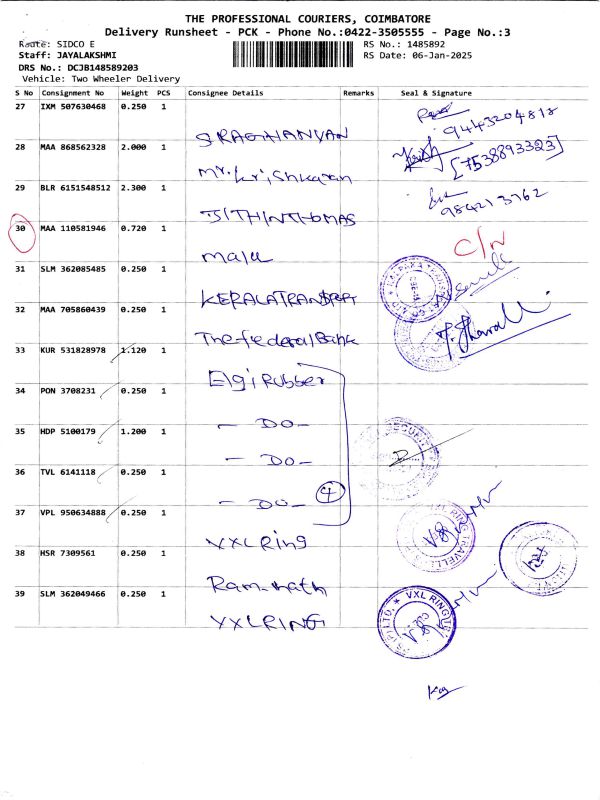 THE PROFESSIONAL COURIERS, COIMBATORE
Delivery Runsheet - PCK - Phone No.:0422-3505555 - Page No.:3
Route: SIDCO E RS No.: 1485892
Staff: JAYALAKSHMI RS Date: 06-Jan-2025
DRS No.: DCJB148589203
Vehicle: Two Wheeler Delivery
S No Consignment No Weight PCS Consignee Details Remarks Seal & Signature
27 IXM 507630468 0.250 1
9443204818
28 MAA 868562328 2.000 1
[7538893323]
29 BLR 6151548512 2.300 1 Mr.Krishkaran
9842713762
30 MAA 110581946 0.720 1 JITHINTHOMAS
C/N
31 SLM 362085485 0.250 1 Malu
32 MAA 705860439 0.250 1 KERALATRANSPORT
33 KUR 531828978 1.120 1 The federal Bank
34 PON 3708231 0.250 1 Elgi Rubber
35 HDP 5100179 1.200 1 - DO -
36 TVL 6141118 0.250 1 - DO -
37 VPL 950634888 0.250 1 - DO - 4
38 HSR 7309561 0.250 1 VXL Ring
39 SLM 362049466 0.250 1 Ramnath
VXLRING
VXL RING